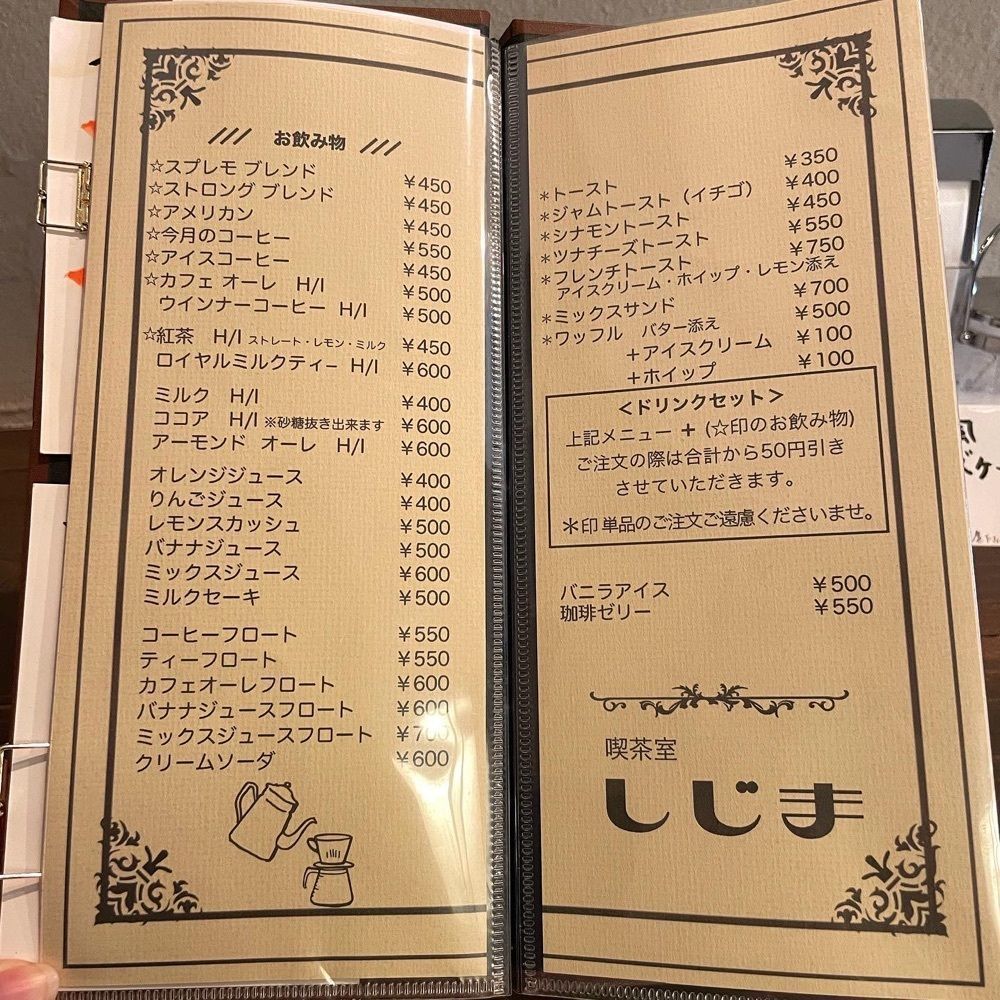 お飲み物
☆スプレモ ブレンド ¥450
☆ストロング ブレンド ¥450
☆アメリカン ¥450
☆今月のコーヒー ¥550
☆アイスコーヒー ¥450
☆カフェ オーレ H/I ¥500
ウインナーコーヒー H/I ¥500
☆紅茶 H/I ストレート・レモン・ミルク ¥450
ロイヤルミルクティー H/I ¥600
ミルク H/I ¥400
ココア H/I ※砂糖抜き出来ます ¥600
アーモンド オーレ H/I ¥600
オレンジジュース ¥400
りんごジュース ¥400
レモンスカッシュ ¥500
バナナジュース ¥500
ミックスジュース ¥600
ミルクセーキ ¥500
コーヒーフロート ¥550
ティーフロート ¥550
カフェオーレフロート ¥600
バナナジュースフロート ¥600
ミックスジュースフロート ¥700
クリームソーダ ¥600
＊トースト ¥350
＊ジャムトースト（イチゴ） ¥400
＊シナモントースト ¥450
＊ツナチーズトースト ¥550
＊フレンチトースト ¥750
アイスクリーム・ホイップ・レモン添え
＊ミックスサンド ¥700
＊ワッフル バター添え ¥500
＋アイスクリーム ¥100
＋ホイップ ¥100
＜ドリンクセット＞
上記メニュー ＋ (☆印のお飲み物)
ご注文の際は合計から50円引き
させていただきます。
＊印 単品のご注文ご遠慮くださいませ。
バニラアイス ¥500
珈琲ゼリー ¥550
喫茶室
しじま